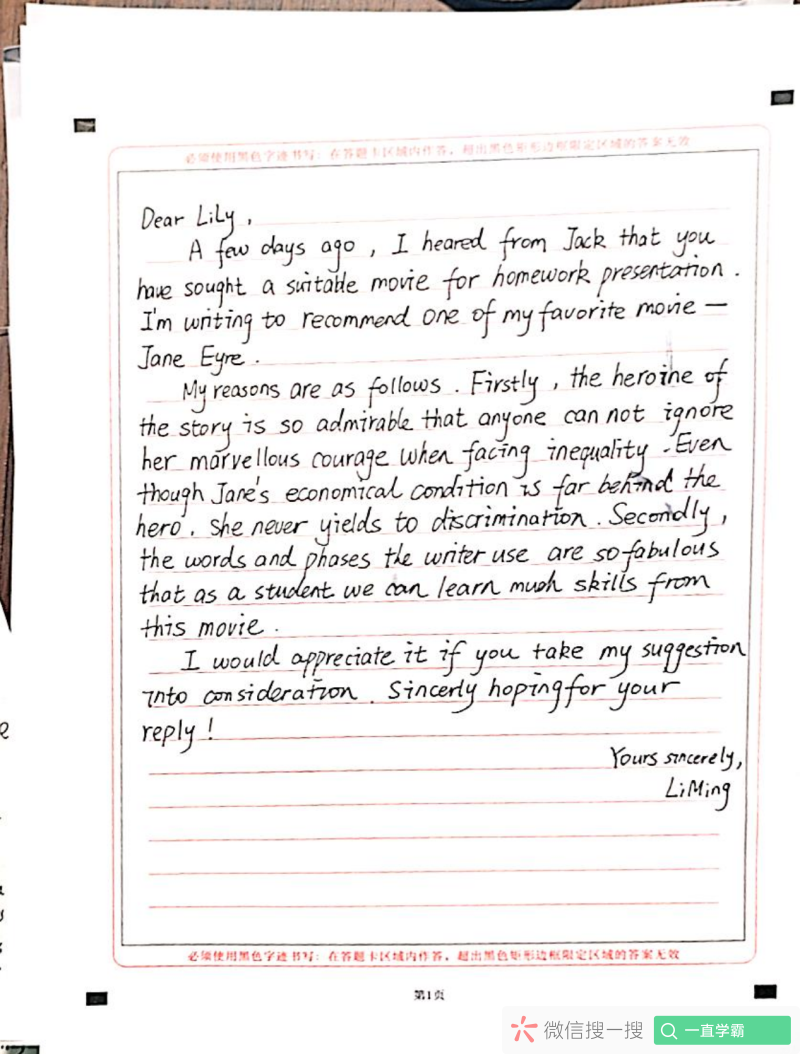 必须使用黑色字迹书写：在答题卡区域内作答，超出黑色矩形边框限定区域的答案无效
Dear LiLy,
A few days ago, I heared from Jack that you
have sought a suitable movie for homework presentation.
I'm writing to recommend one of my favorite movie —
Jane Eyre.
My reasons are as follows. Firstly, the heroine of
the story is so admirable that anyone can not ignore
her marvellous courage when facing inequality. Even
though Jane's economical condition is far behind the
hero, she never yields to discrimination. Secondly,
the words and phases the writer use are so fabulous
that as a student we can learn much skills from
this movie.
I would appreciate it if you take my suggestion
into consideration. Sincerly hoping for your
reply!
Yours sincerely,
LiMing
必须使用黑色字迹书写：在答题卡区域内作答，超出黑色矩形边框限定区域的答案无效
第1页
微信搜一搜
一直学霸